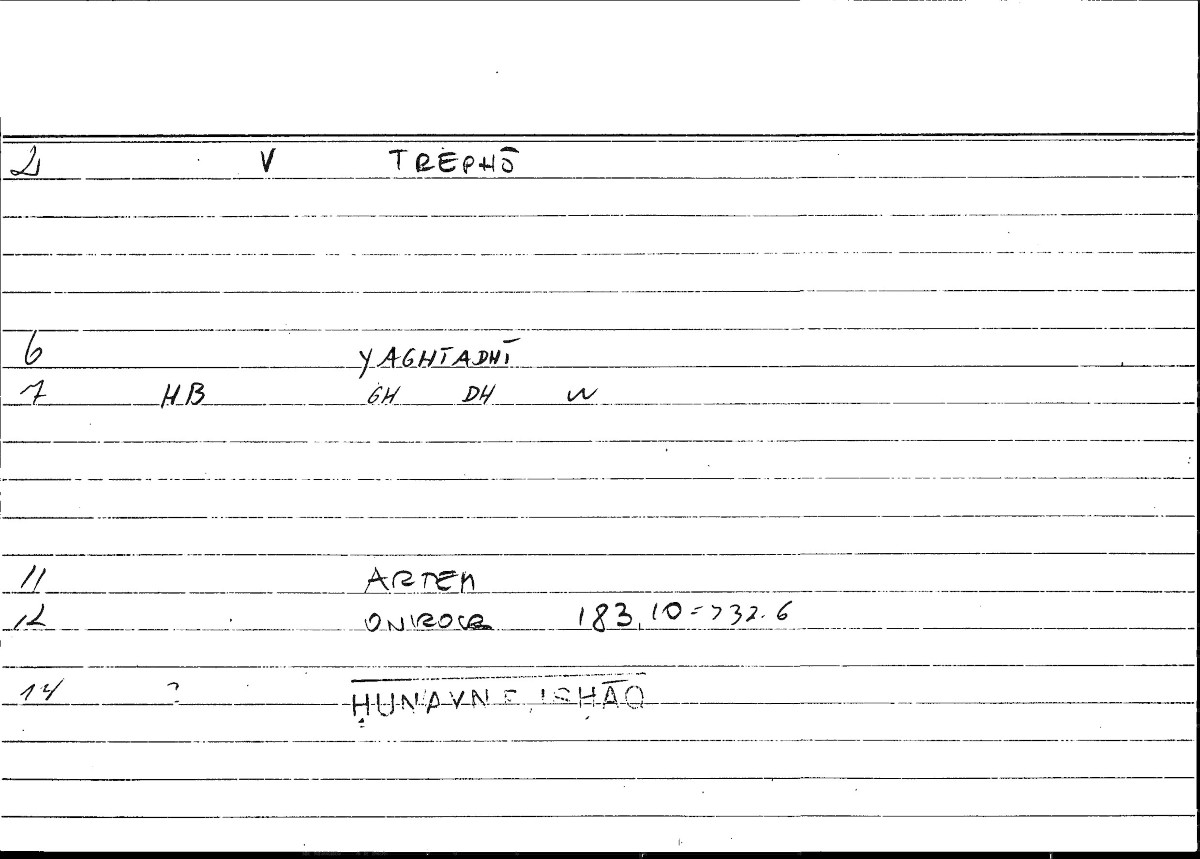 2 V TRĒPHŌ
6 YAGHTADHĪ
7 HB GH DH W
11 ARTEM
12 ONIROCR 183,10=232.6
14 ? ḤUNAYN B. ISḤĀQ